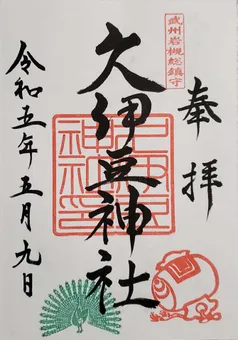 武州岩槻総鎮守
奉拝
久伊豆神社
令和五年五月九日